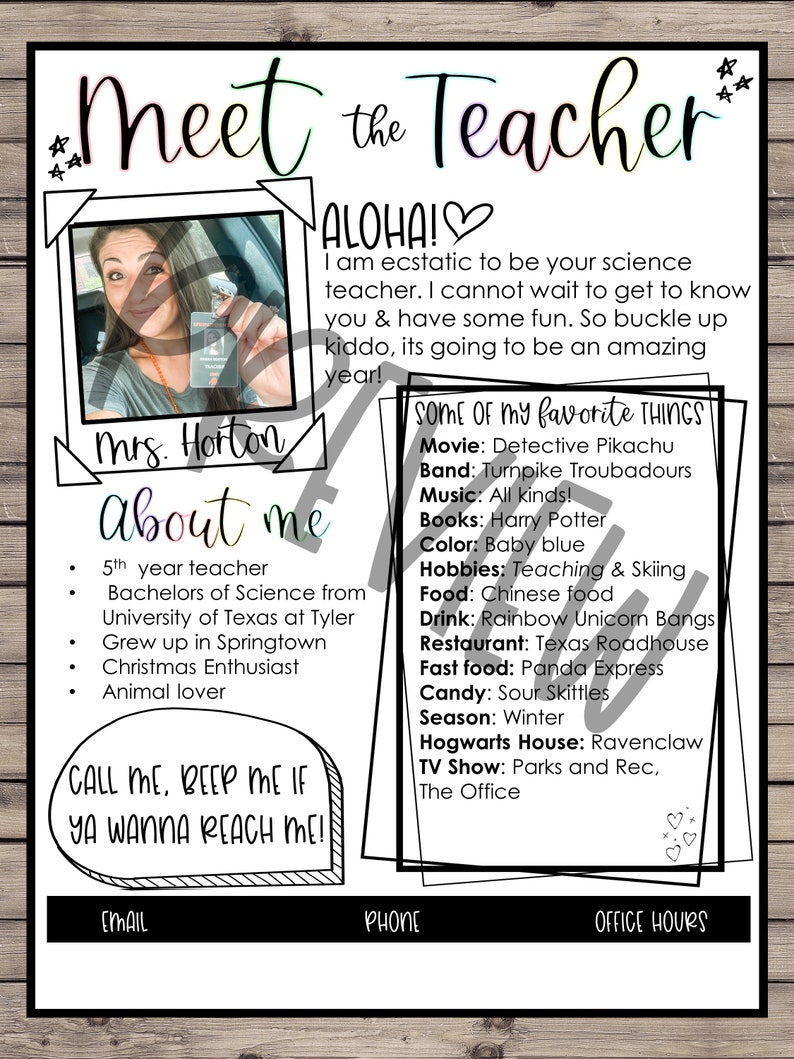 Meet the Teacher
ALOHA!
I am ecstatic to be your science
teacher. I cannot wait to get to know
you & have some fun. So buckle up
kiddo, its going to be an amazing
year!
Mrs. Horton
TEACHER
About me
• 5th year teacher
• Bachelors of Science from
University of Texas at Tyler
• Grew up in Springtown
• Christmas Enthusiast
• Animal lover
SOME OF MY favorite THINGS
Movie: Detective Pikachu
Band: Turnpike Troubadours
Music: All kinds!
Books: Harry Potter
Color: Baby blue
Hobbies: Teaching & Skiing
Food: Chinese food
Drink: Rainbow Unicorn Bangs
Restaurant: Texas Roadhouse
Fast food: Panda Express
Candy: Sour Skittles
Season: Winter
Hogwarts House: Ravenclaw
TV Show: Parks and Rec,
The Office
CALL ME, BEEP ME IF
YA WANNA REACH ME!
EMAIL PHONE OFFICE HOURS
PREVIEW